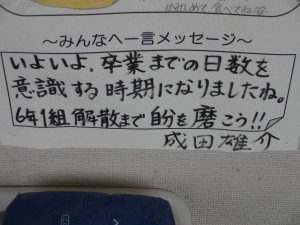 かみしめて食べてね
〜みんなへ一言メッセージ〜
いよいよ、卒業までの日数を
意識する時期になりましたね。
6年1組 解散まで自分を磨こう!!
成田雄介